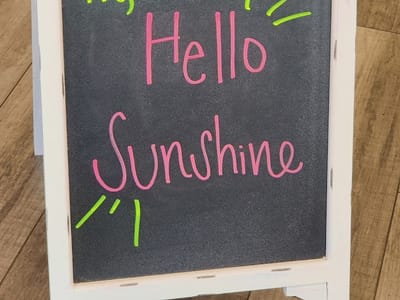 Hello
Sunshine